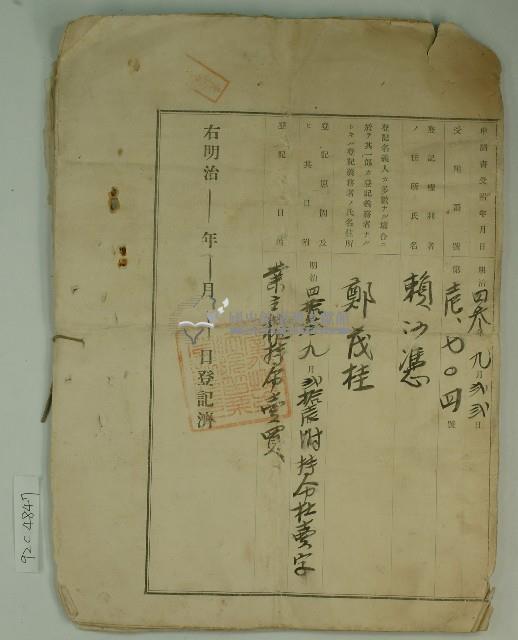 申請書受附年月日 明治四參年九月弐弐日
受附番號 第壱、七〇四號
登記權利者ノ住所氏名 賴
登記名義人カ多數ナル場合ニ於テ其一部カ登記義務者ナルトキハ登記義務者ノ氏名住所 鄭茂桂
登記原因及ヒ其日附 明治 九月 附持分杜賣字
登記目的 業主權持分賣買
右明治 年 月 日登記濟
92C4847